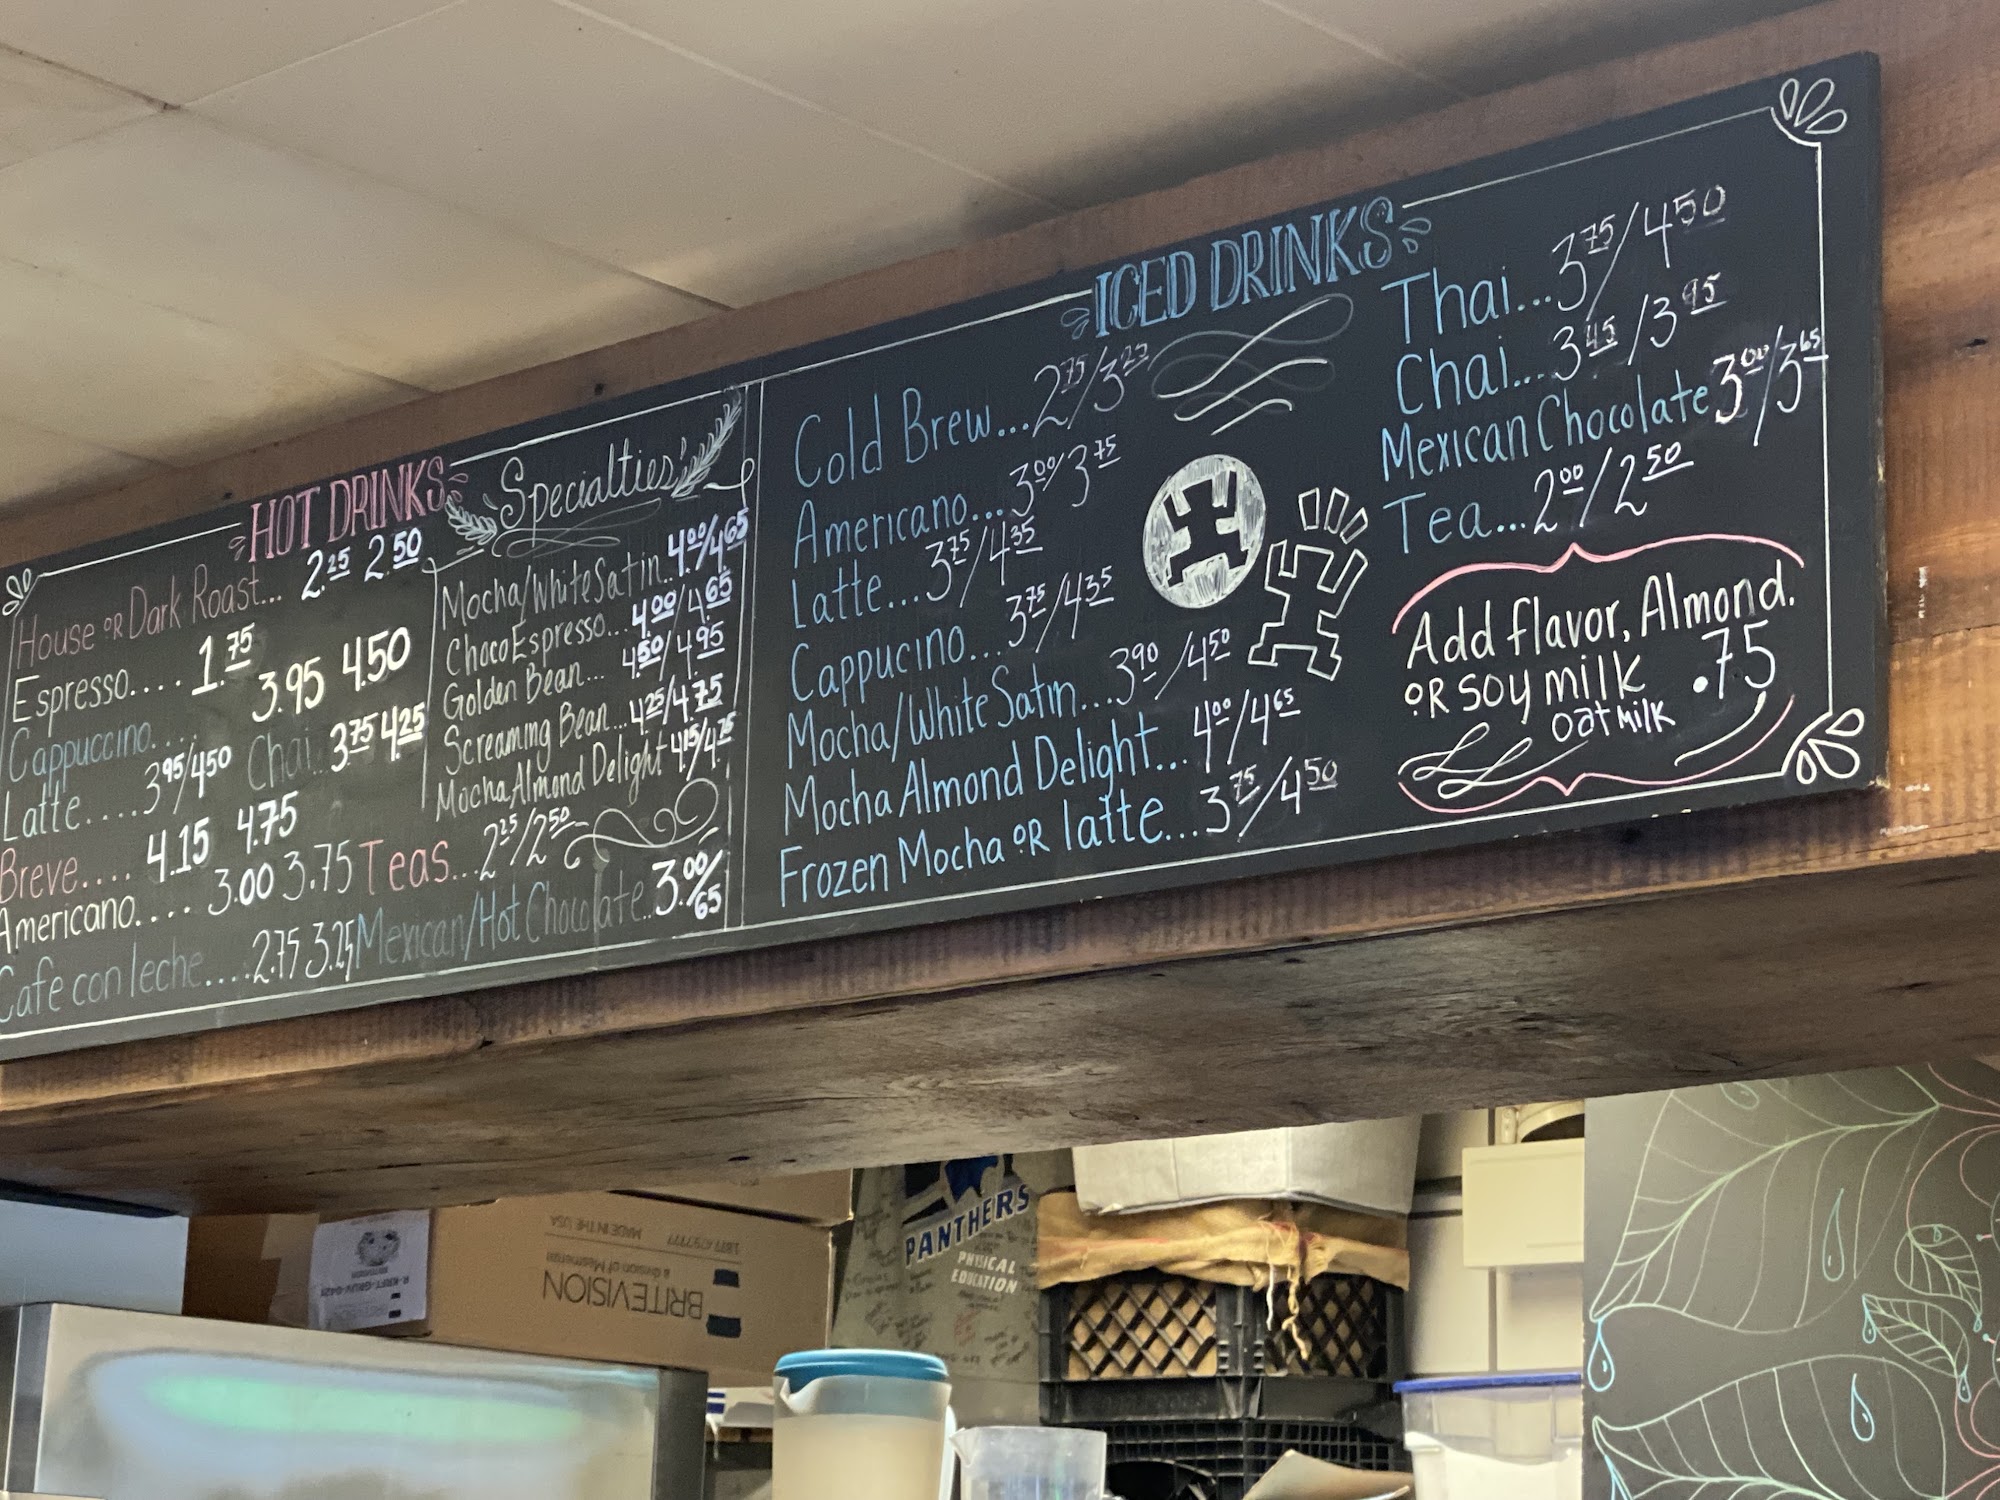 HOT DRINKS
House OR Dark Roast... 2.25 2.50
Espresso.... 1.75
Cappuccino.... 3.95 4.50
Latte.... 3.95/4.50
Chai... 3.75 4.25
Breve.... 4.15 4.75
Americano.... 3.00 3.75
Cafe con leche.... 2.75 3.25
Specialties
Mocha/White Satin.. 4.00/4.65
Choco Espresso... 4.00/4.65
Golden Bean... 4.50/4.95
Screaming Bean... 4.25/4.75
Mocha Almond Delight 4.15/4.75
Teas... 2.25/2.50
Mexican/Hot Chocolate.. 3.00/65
ICED DRINKS
Cold Brew... 2.75/3.25
Americano... 3.00/3.75
Latte... 3.75/4.35
Cappucino... 3.75/4.35
Mocha/White Satin... 3.90/4.50
Mocha Almond Delight... 4.00/4.65
Frozen Mocha OR latte... 3.75/4.50
Thai... 3.75/4.50
Chai... 3.45/3.95
Mexican Chocolate 3.00/3.65
Tea... 2.00/2.50
Add flavor, Almond,
OR soy milk .75
oat milk
PANTHERS
PHYSICAL
EDUCATION
MADE IN THE USA
BRITEVISION